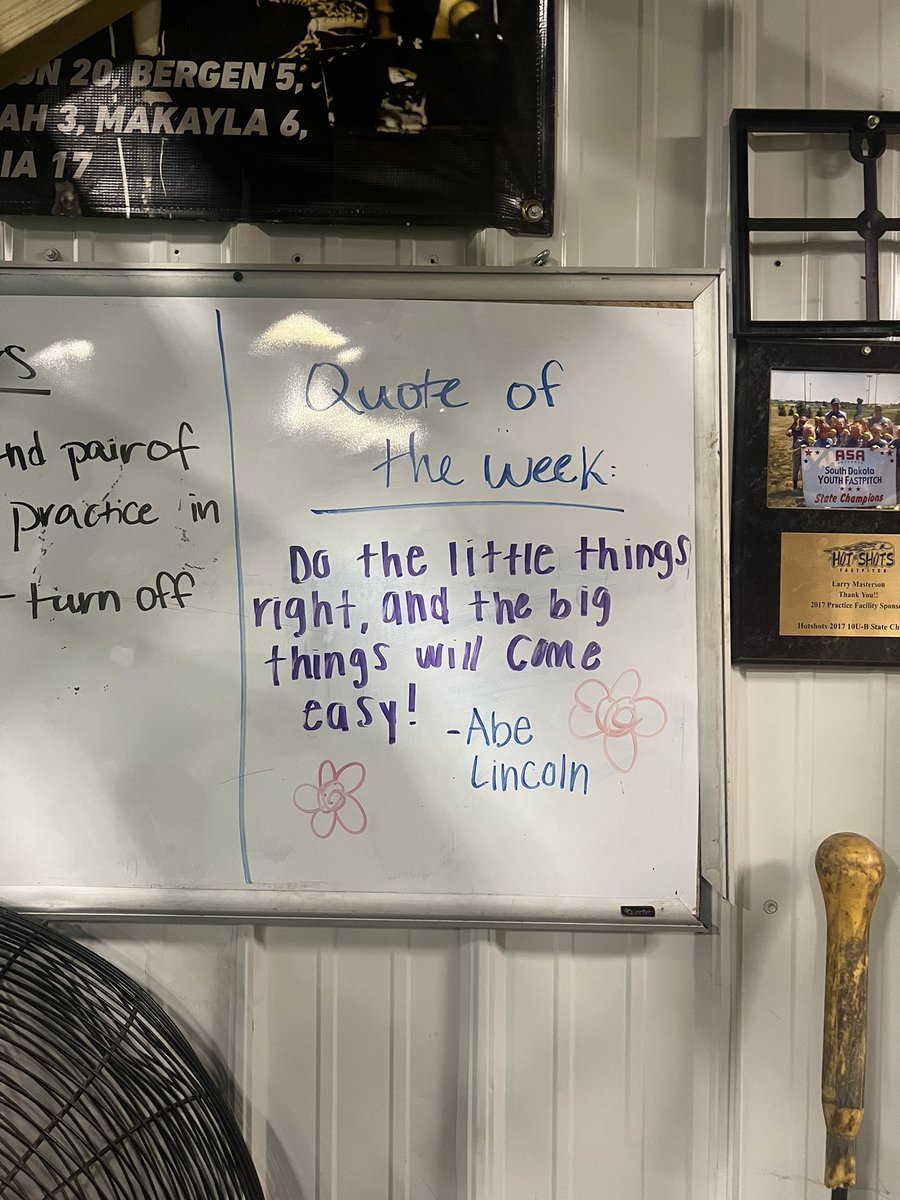 ON 20, BERGEN 5,
AH 3, MAKAYLA 6,
IA 17
Quote of
the week:
nd pair of
practice in
turn off
Do the little things
right, and the big
things will come
easy!
-Abe
Lincoln
Quartet
ASA
South Dakota
YOUTH FASTPITCH
State Champions
HOT SHOTS
FASTPITCH
Larry Masterson
Thank You!!
2017 Practice Facility Spons
Hotshots 2017 10U-B State Ch